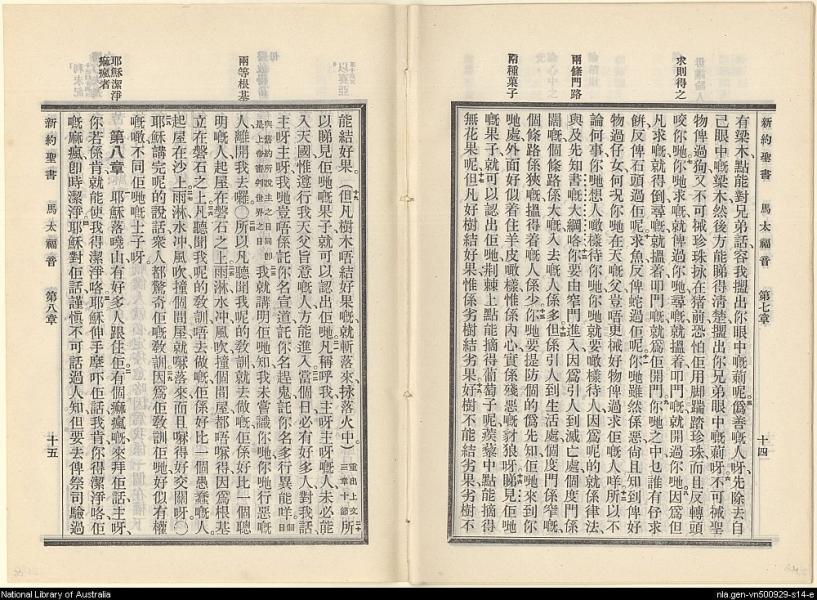 新約聖書　馬太福音　第七章　十四
求則得之
兩條門路
兩種菓子
有梁木點能對兄弟話容我攞出你眼中嘅蔪呢僞善嘅人呀先除去自
己眼中嘅梁木然後方能睇得清楚攞出你兄弟眼中嘅蔪呀不可械聖
物俾過狗又不可械珍珠拺在猪前恐怕佢用脚踹踏珍珠而且反轉頭
咬你哋你哋求嘅就俾過你哋尋嘅就搵着叩門嘅就開過你哋因爲但
凡求嘅就得倒尋嘅就搵着叩門嘅就爲佢開門你哋之中乜誰有仔求
餅反俾石頭過佢呢求魚反俾蛇過佢呢你哋雖然係惡尙且知到俾好
物過仔女何况你哋在天嘅父豈唔更械好物俾過求佢嘅人咩所以不
論何事你哋想人噉樣待你哋你哋就要噉樣待人因爲呢的就係律法
與及先知書嘅大綱咯你要由窄門進入因爲引人到滅亡處個度門係
闊嘅個條路係大嘅入去嘅人係多但係引人到生活處個度門係窄嘅
個條路係狹嘅搵得着嘅人係少你哋要提防個的僞先知佢哋來到你
哋處外面好似着住羊皮噉樣惟係內心實係殘惡嘅豺狼呀睇見佢哋
嘅果子就可以認出佢哋荆棘上點能摘得葡萄子呢蒺藜中點能摘得
無花果呢但凡好樹結好果惟係劣樹結劣果好樹不能結劣果劣樹不
以賽亞
兩等根基
耶穌潔淨
痲瘋者
能結好果（但凡樹木唔結好果嘅就斬落來拺落火中）重出上文三章十節所
以睇見佢哋嘅果子就可以認出佢哋凡稱呼我主呀主呀嘅人未必能
入天國惟遵行我天父旨意嘅人方能進入當個日必有好多人對我話
主呀主呀我哋豈唔係託你名宣道託你名趕鬼託你名多行異能咩
我就講明佢哋知我未嘗識你哋你哋行惡嘅
人離開我去囉〇所以凡聽聞我呢的敎訓就去做嘅佢係好比一個聰
明嘅人起屋在磐石之上雨淋水冲風吹撞個間屋都唔㗎得因爲根基
立在磐石之上凡聽聞我呢的敎訓唔去做嘅佢係好比一個愚蠢嘅人
起屋在沙上雨淋水冲風吹撞個間屋就㗎落來而且㗎得好交關呀〇
耶穌講完呢的說話衆人都驚奇佢嘅敎訓因爲佢敎訓佢哋好似有權
嘅噉不同佢哋嘅士子呀
第八章　耶穌落嘵山有好多人跟住佢有個痲瘋嘅來拜佢話主呀
你若係肯就能使我得潔淨咯耶穌伸手摩吓佢話我肯你得潔淨咯佢
嘅痲瘋卽時潔淨耶穌對佢話謹愼不可話過人知但要去俾祭司驗過
新約聖書　馬太福音　第八章　十五
National Library of Australia
nla.gen-vn500929-s14-e